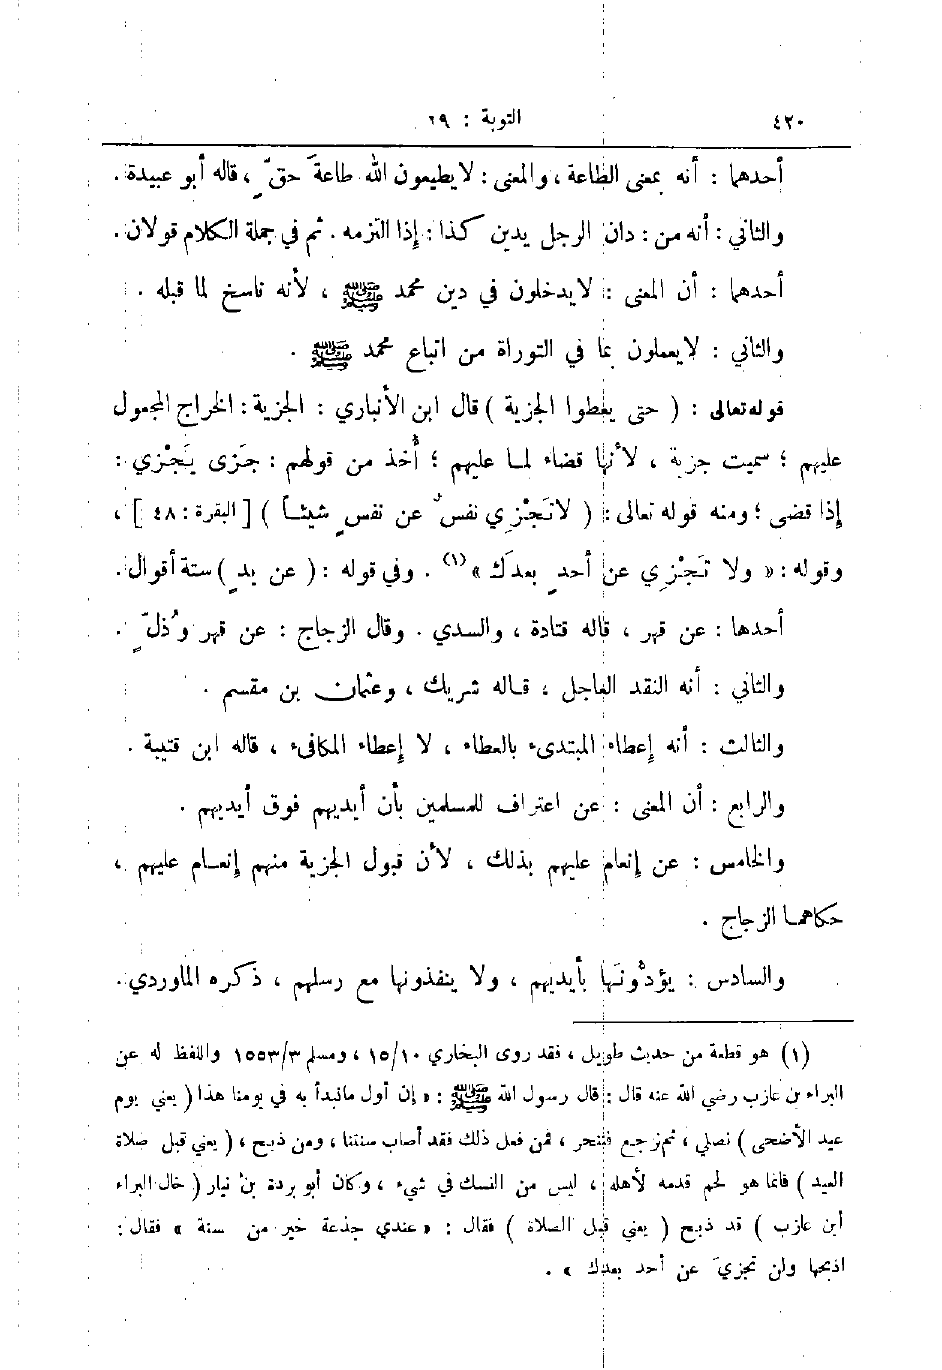 ٤٢٠ التوبة : ٢٩
أحدهما : أنه بمعنى الطاعة ، والمعنى : لا يطيعون الله طاعةَ حقٍّ ، قاله أبو عبيدة .
والثاني : أنه من : دان الرجل يدين كذا : إذا التزمه . ثم في جملة الكلام قولان .
أحدهما : أن المعنى : لا يدخلون في دين محمد ﷺ ، لأنه ناسخ لما قبله .
والثاني : لا يعملون بما في التوراة من اتباع محمد ﷺ .
قوله تعالى : ( حتى يعطوا الجزية ) قال ابن الأنباري : الجزية : الخراج المجعول
عليهم ؛ سميت جزية ، لأنها قضاء لما عليهم ؛ أُخذ من قولهم : جَزى يَجْزي :
إذا قضى ؛ ومنه قوله تعالى : ( لا تَجْزِي نفسٌ عن نفسٍ شيئاً ) [ البقرة : ٤٨ ] ،
وقوله : « ولا تَجْزِي عن أحدٍ بعدَك » (١) . وفي قوله : ( عن يدٍ ) ستة أقوال .
أحدها : عن قهر ، قاله قتادة ، والسدي . وقال الزجاج : عن قهر وذُلٍّ .
والثاني : أنه النقد العاجل ، قاله شريك ، وعثمان بن مقسم .
والثالث : أنه إعطاء المبتدىء بالعطاء ، لا إعطاء المكافىء ، قاله ابن قتيبة .
والرابع : أن المعنى : عن اعتراف للمسلمين بأن أيديهم فوق أيديهم .
والخامس : عن إنعام عليهم بذلك ، لأن قبول الجزية منهم إنعام عليهم ،
حكاهما الزجاج .
والسادس : يؤدُّونَها بأيديهم ، ولا ينفذونها مع رسلهم ، ذكره الماوردي .
(١) هو قطعة من حديث طويل ، فقد روى البخاري ١٥/١٠ ، ومسلم ١٥٥٣/٣ واللفظ له عن
البراء بن عازب رضي الله عنه قال : قال رسول الله ﷺ : « إن أول ما نبدأ به في يومنا هذا ( يعني يوم
عيد الأضحى ) نصلي ، ثم نرجع فننحر ، فمن فعل ذلك فقد أصاب سنتنا ، ومن ذبح ، ( يعني قبل صلاة
العيد ) فانما هو لحم قدمه لأهله ، ليس من النسك في شيء ، وكان أبو بردة بن نيار ( خال البراء
ابن عازب ) قد ذبح ( يعني قبل الصلاة ) فقال : « عندي جذعة خير من سنة » فقال :
اذبحها ولن تجزيَ عن أحد بعدك » .